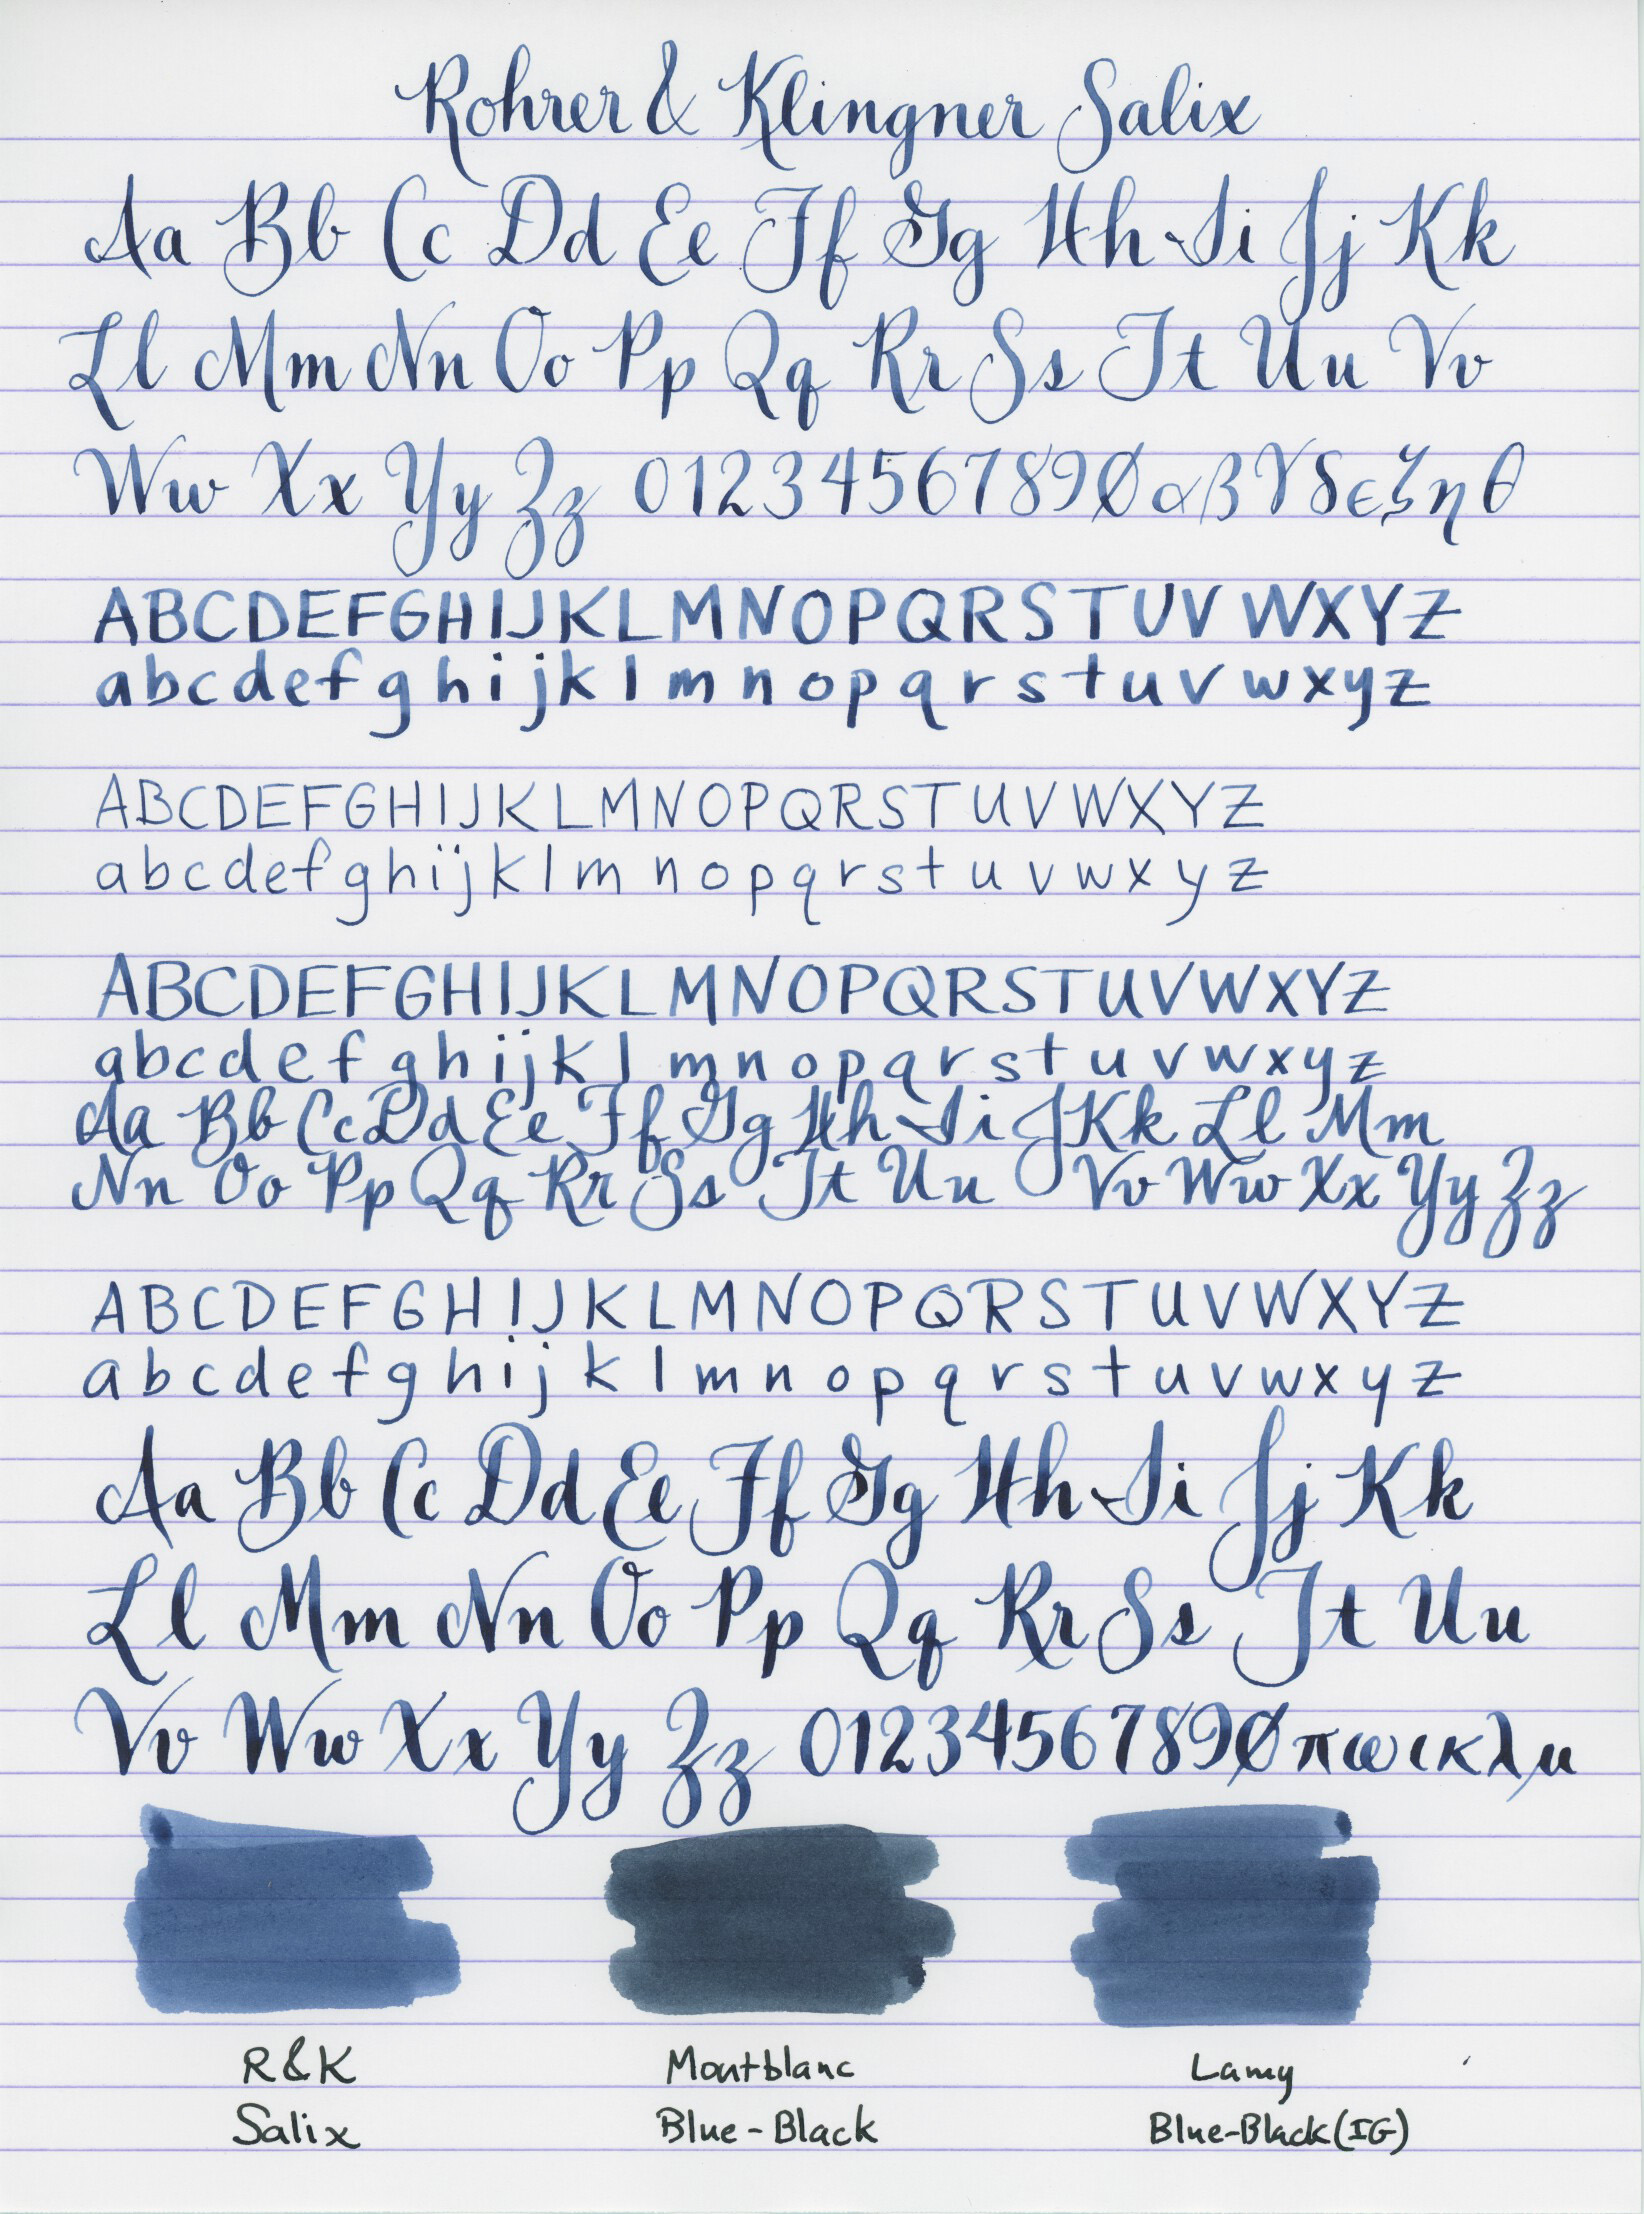 Rohrer & Klingner Salix
Aa Bb Cc Dd Ee Ff Gg Hh Ii Jj Kk
Ll Mm Nn Oo Pp Qq Rr Ss Tt Uu Vv
Ww Xx Yy Zz 01234567890 αβγδεζηθ
ABCDEFGHIJKLMNOPQRSTUVWXYZ
abcdefghijklmnopqrstuvwxyz
ABCDEFGHIJKLMNOPQRSTUVWXYZ
abcdefghijklmnopqrstuvwxyz
ABCDEFGHIJKLMNOPQRSTUVWXYZ
abcdefghijklmnopqrstuvwxyz
Aa Bb Cc Dd Ee Ff Gg Hh Ii J Kk Ll Mm
Nn Oo Pp Qq Rr Ss Tt Uu Vv Ww Xx Yy Zz
ABCDEFGHIJKLMNOPQRSTUVWXYZ
abcdefghijklmnopqrstuvwxyz
Aa Bb Cc Dd Ee Ff Gg Hh Ii Jj Kk
Ll Mm Nn Oo Pp Qq Rr Ss Tt Uu
Vv Ww Xx Yy Zz 0123456789Ø πωικλμ
R&K
Salix
Montblanc
Blue-Black
Lamy
Blue-Black(IG)